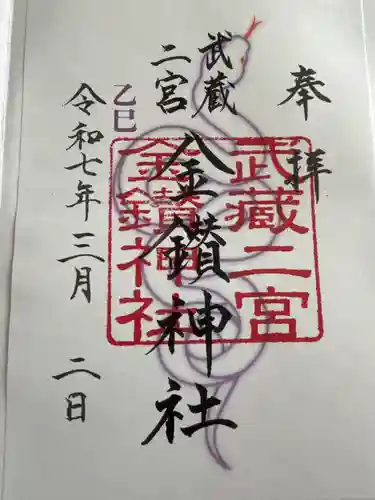 奉拝
武蔵
二宮
金鑚神社
乙巳
令和七年三月二日
武蔵二宮
金鑚神社